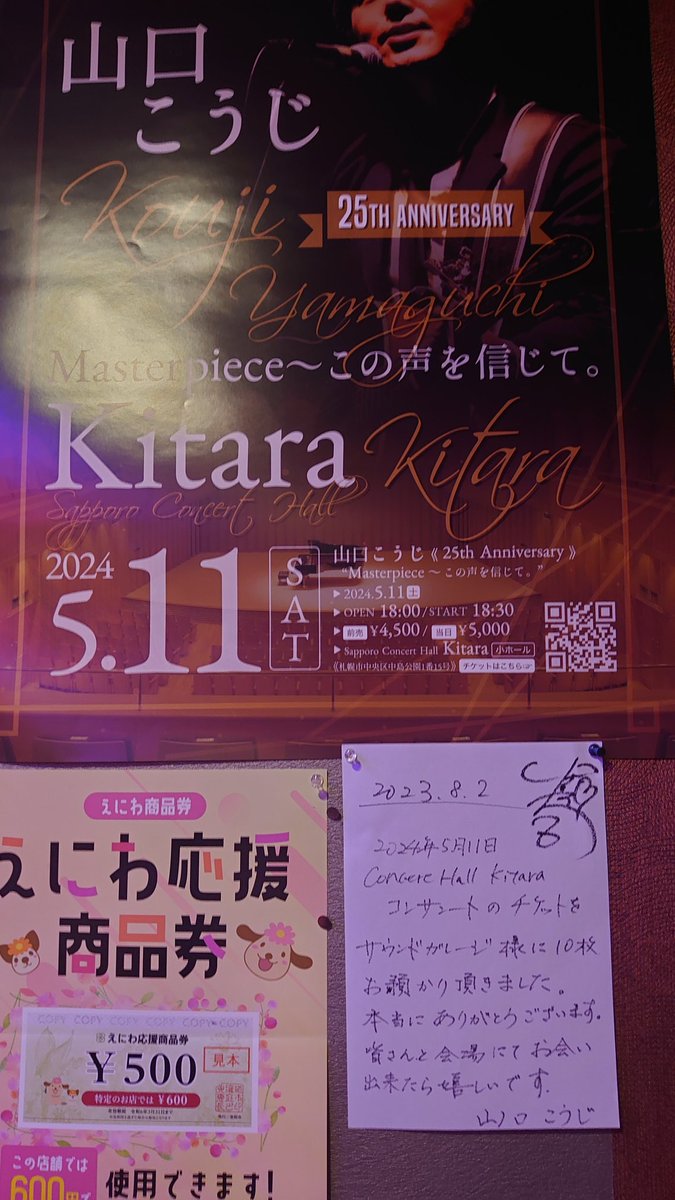 山口
こうじ
Kouji
25TH ANNIVERSARY
Yamaguchi
Masterpiece～この声を信じて。
Kitara Kitara
Sapporo Concert Hall
2024
5.11
SAT
山口こうじ《 25th Anniversary 》
“Masterpiece ～ この声を信じて。”
▶ 2024.5.11 土
▶ OPEN 18:00 / START 18:30
▶ 前売 ¥4,500 / 当日 ¥5,000
▶ Sapporo Concert Hall Kitara 小ホール
《札幌市中央区中島公園1番15号》 チケットはこちら☞
えにわ商品券
えにわ応援
商品券
COPY COPY COPY COPY COPY
えにわ応援商品券
¥500
見本
特定のお店では ¥600
この店舗では
600円で
使用できます!
2023.8.2
2024年5月11日
Concert Hall Kitara
コンサートのチケットを
サウンドガレージ様に10枚
お預かり頂きました。
本当にありがとうございます。
皆さんと会場にてお会い
出来たら嬉しいです。
山口こうじ